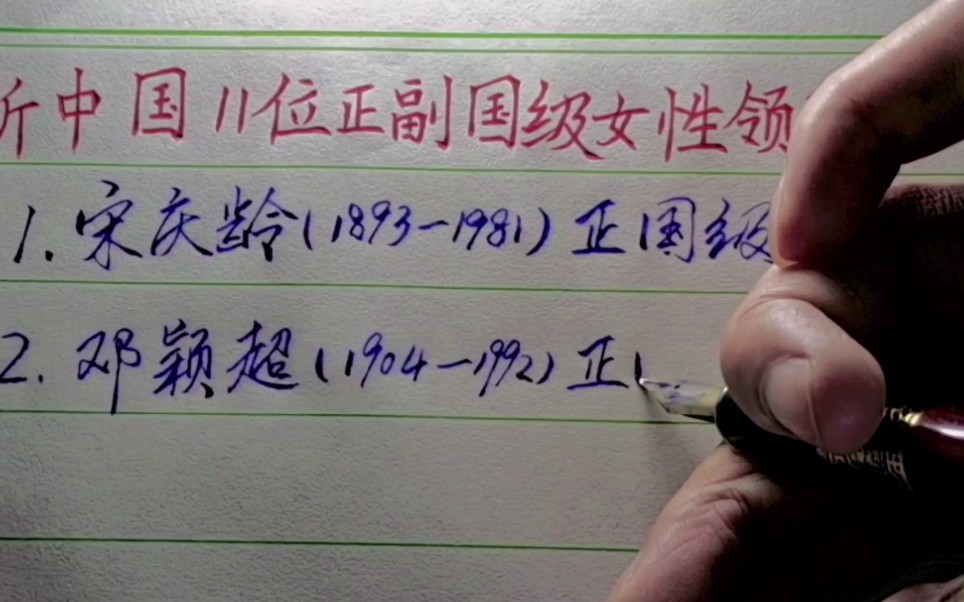 新中国11位正副国级女性领
1. 宋庆龄(1893-1981)正国级
2. 邓颖超(1904-1992)正